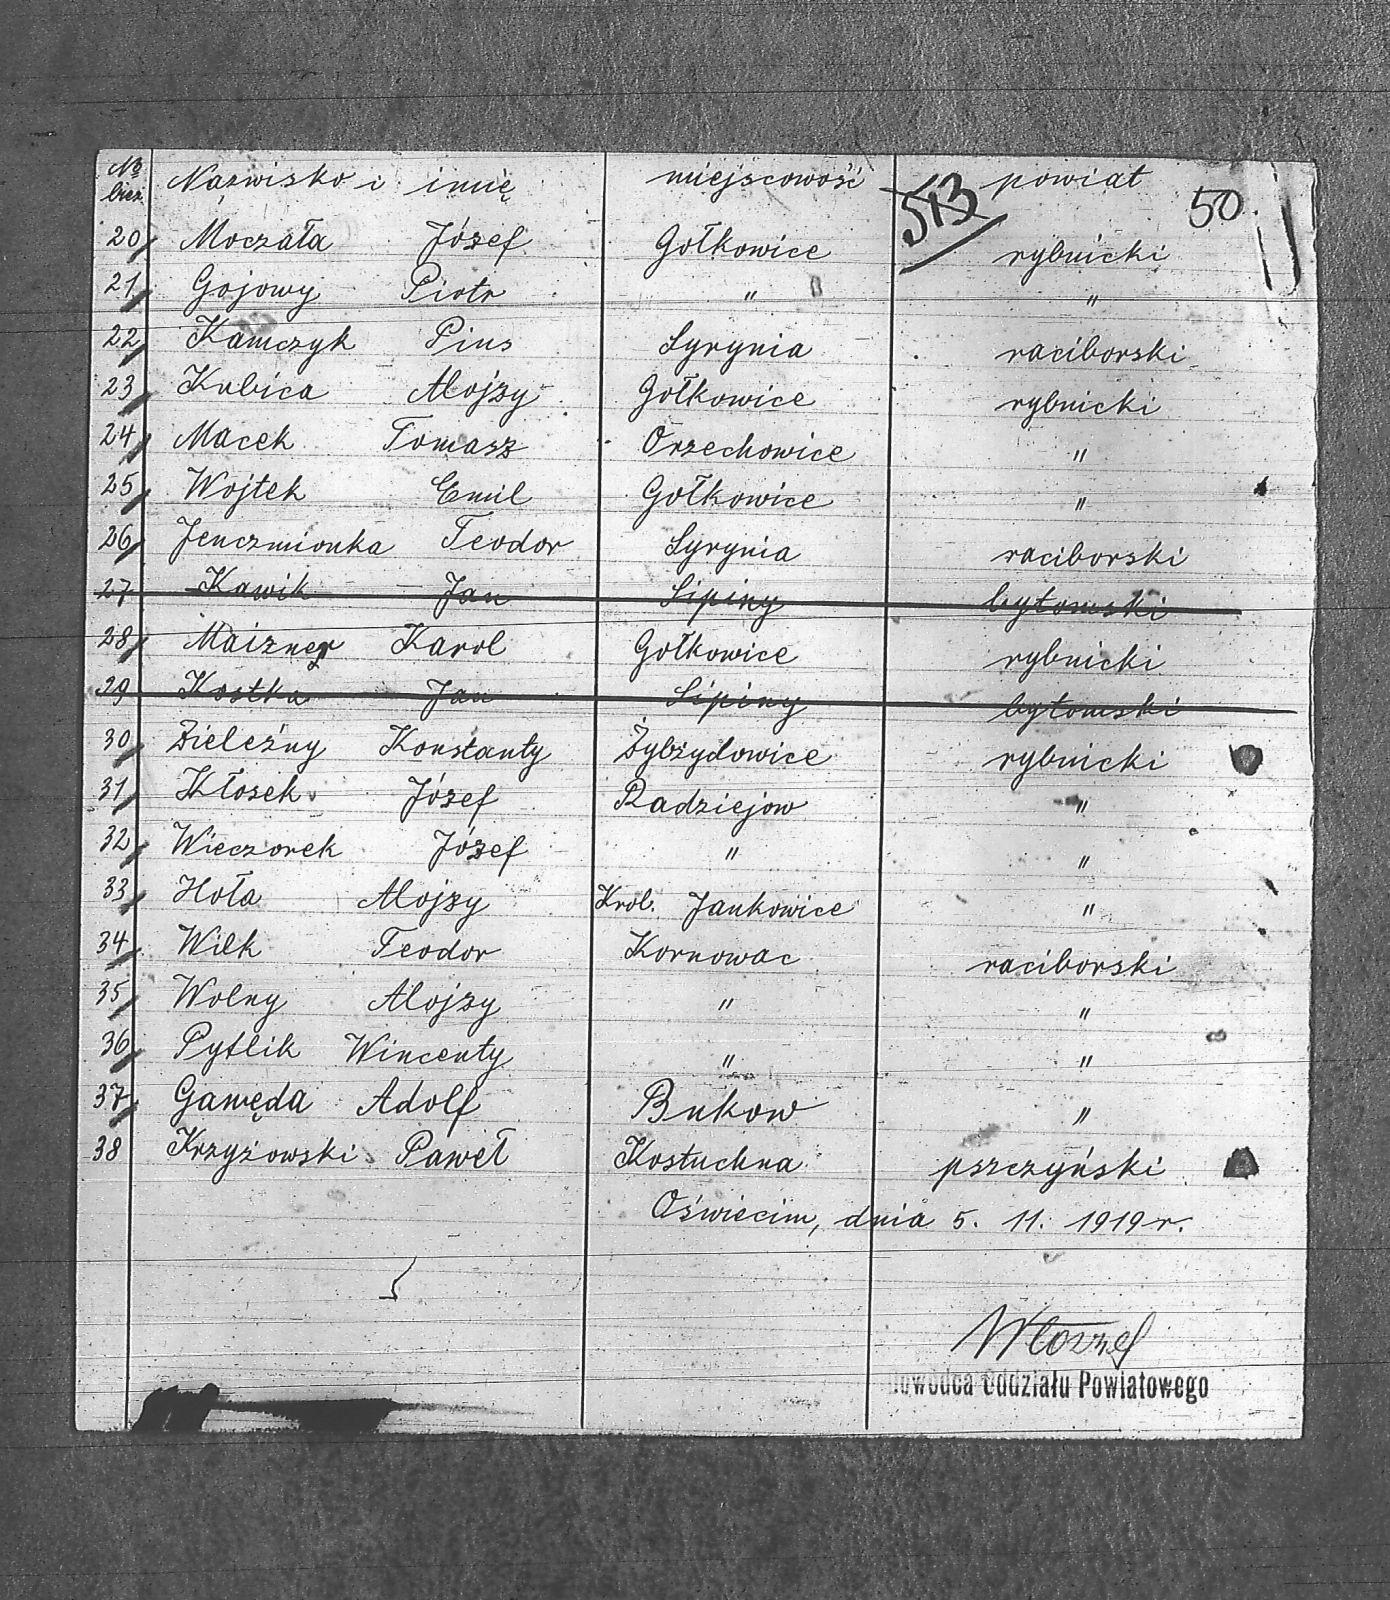 № bież. Nazwisko i imię miejscowość powiat
513 50.
20 Moczała Józef Gołkowice rybnicki
21 Gojowy Piotr " "
22 Kamczyk Pius Syrynia raciborski
23 Kubica Alojzy Gołkowice rybnicki
24 Macek Tomasz Orzechowice "
25 Wojtek Emil Gołkowice "
26 Jenczmionka Teodor Syrynia raciborski
27 Kawik Jan Lipiny bytomski
28 Maizner Karol Gołkowice rybnicki
29 Kostka Jan Lipiny bytomski
30 Zieleźny Konstanty Żybżydowice rybnicki
31 Kłosek Józef Radziejow "
32 Wieczorek Józef " "
33 Hoła Alojzy Król. Jankowice "
34 Wilk Teodor Kornowac raciborski
35 Wolny Alojzy " "
36 Pytlik Wincenty " "
37 Gawęda Adolf Bukow "
38 Krzyżowski Paweł Kostuchna pszczyński
Oświecim, dnia 5. 11. 1919 r.
Dowódca Oddziału Powiatowego